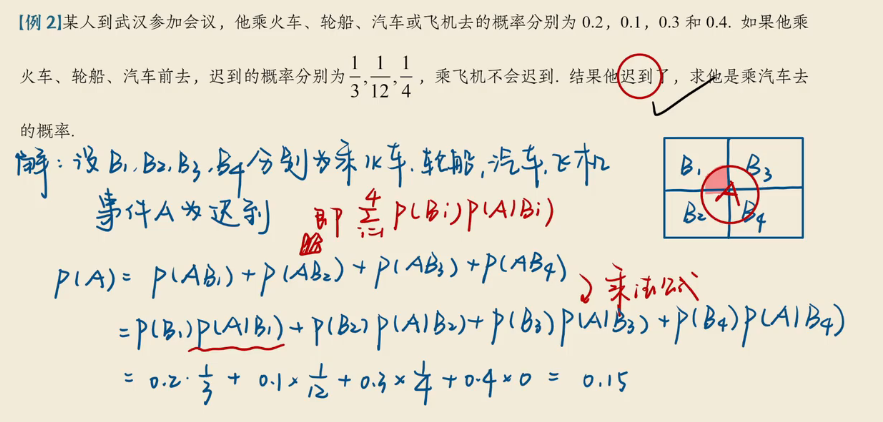 【例 2】某人到武汉参加会议，他乘火车、轮船、汽车或飞机去的概率分别为 0.2，0.1，0.3 和 0.4. 如果他乘
火车、轮船、汽车前去，迟到的概率分别为 1/3, 1/12, 1/4，乘飞机不会迟到. 结果他迟到了，求他是乘汽车去
的概率.
解：设 B₁, B₂, B₃, B₄ 分别为乘火车.轮船,汽车.飞机
B₁ B₃
A
B₂ B₄
事件A为迟到 即 ∑_{i=1}^{4} P(Bi)P(A|Bi)
P(A) = P(AB₁) + P(AB₂) + P(AB₃) + P(AB₄)
乘法公式
= P(B₁)P(A|B₁) + P(B₂)P(A|B₂) + P(B₃)P(A|B₃) + P(B₄)P(A|B₄)
= 0.2·1/3 + 0.1×1/12 + 0.3×1/4 + 0.4×0 = 0.15